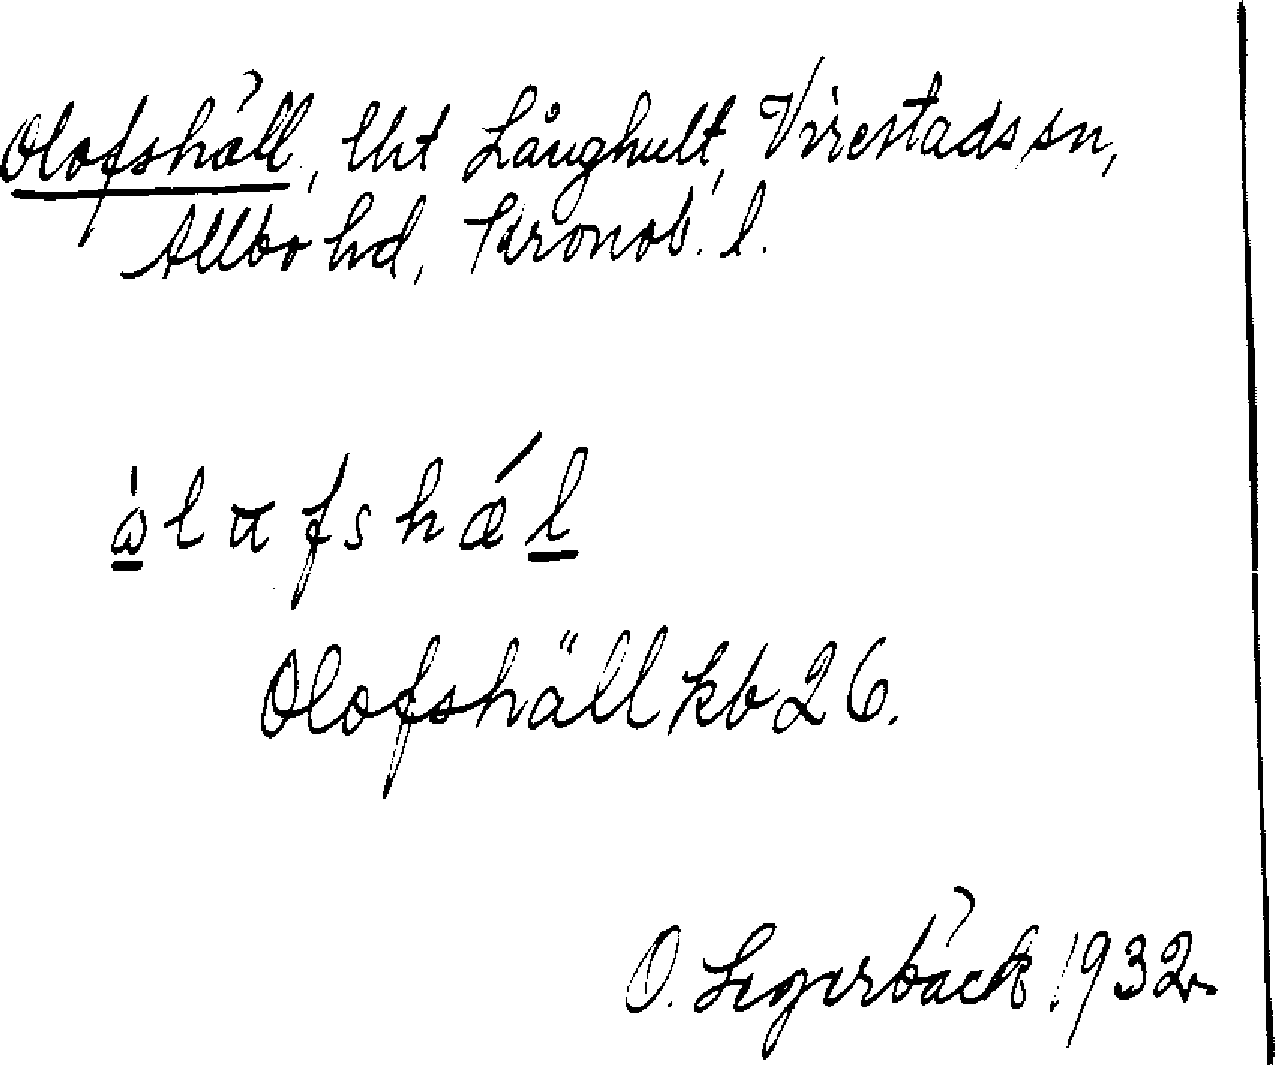 Olofshäll, lht Långhult, Virestads sn,
Allbo hd, Kronob. l.
Olofshäll kb 26.
O. Segerbäck 1932.